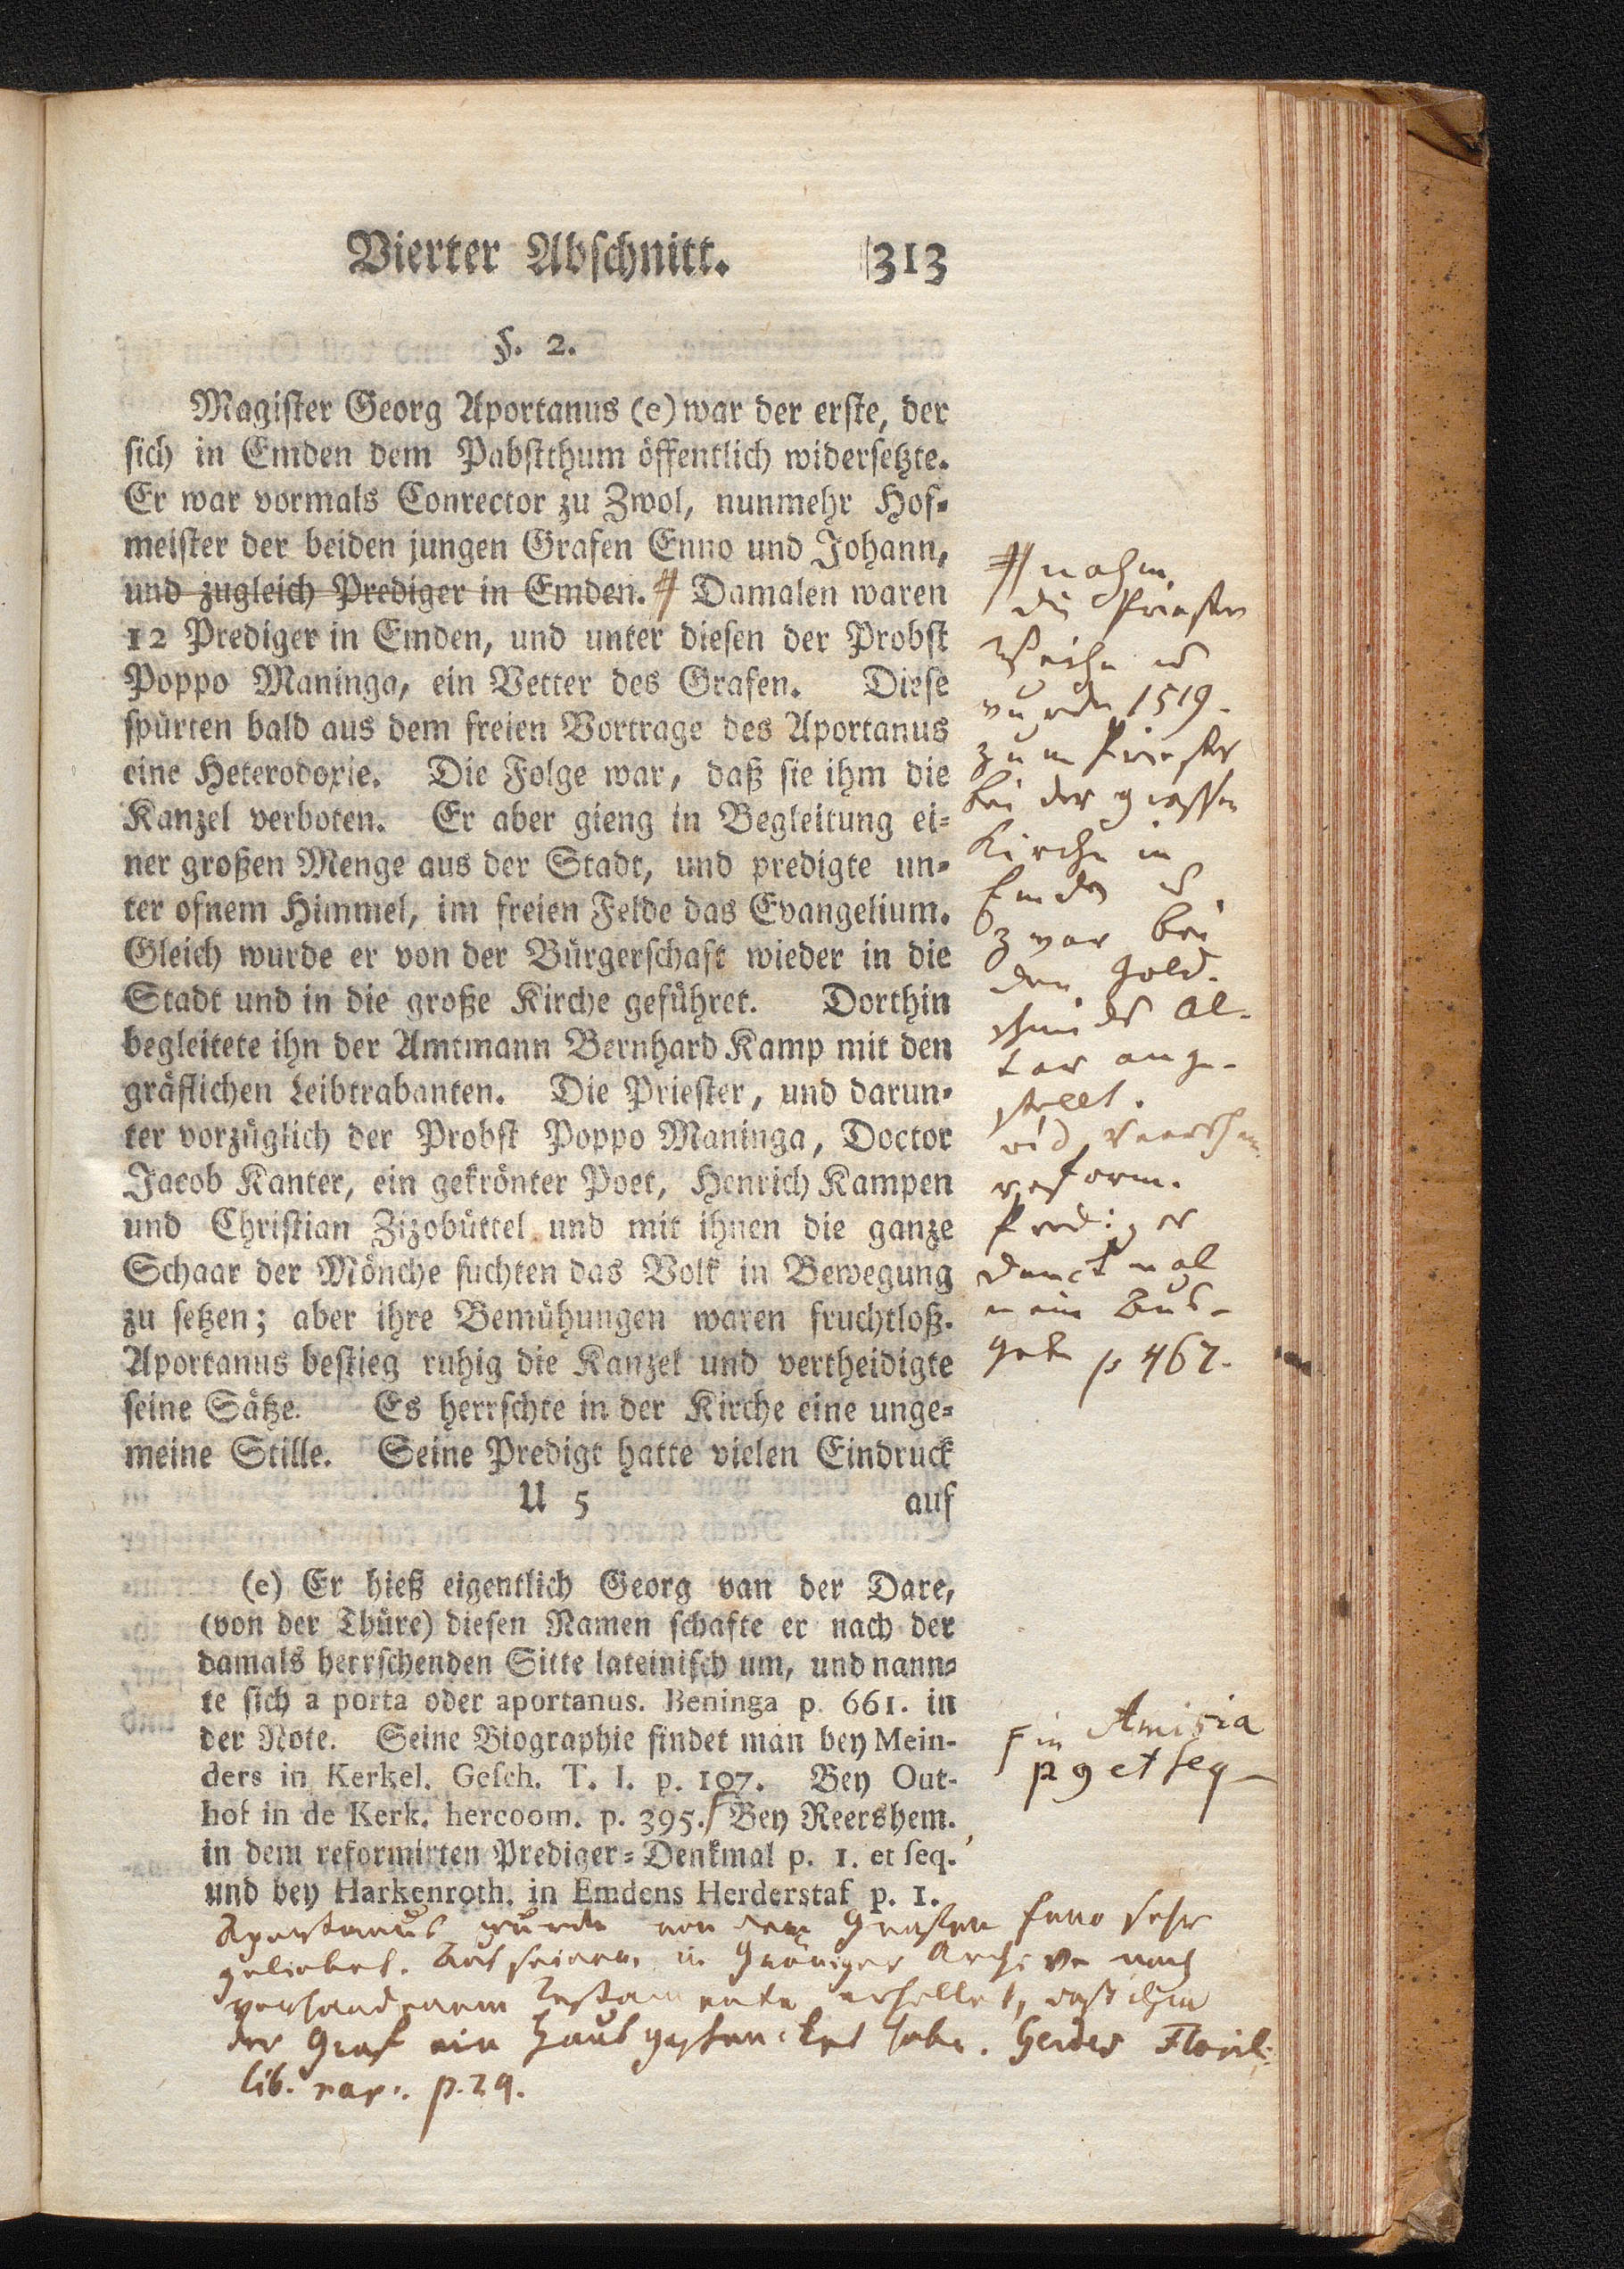 Vierter Abschnitt. 313
§. 2.
Magister Georg Aportanus (e) war der erste, der
sich in Emden dem Pabstthum öffentlich widersetzte.
Er war vormals Conrector zu Zwol, nunmehr Hof-
meister der beiden jungen Grafen Enno und Johann,
und zugleich Prediger in Emden. # Damalen waren
12 Prediger in Emden, und unter diesen der Probst
Poppo Maninga, ein Vetter des Grafen. Diese
spürten bald aus dem freien Vortrage des Aportanus
eine Heterodoxie. Die Folge war, daß sie ihm die
Kanzel verboten. Er aber gieng in Begleitung ei-
ner großen Menge aus der Stadt, und predigte un-
ter ofnem Himmel, im freien Felde das Evangelium.
Gleich wurde er von der Bürgerschaft wieder in die
Stadt und in die große Kirche geführet. Dorthin
begleitete ihn der Amtmann Bernhard Kamp mit den
gräflichen Leibtrabanten. Die Priester, und darun-
ter vorzüglich der Probst Poppo Maninga, Doctor
Jacob Kanter, ein gekrönter Poet, Henrich Kampen
und Christian Zizobüttel und mit ihnen die ganze
Schaar der Mönche suchten das Volk in Bewegung
zu setzen; aber ihre Bemühungen waren fruchtloß.
Aportanus bestieg ruhig die Kanzel und vertheidigte
seine Sätze. Es herrschte in der Kirche eine unge-
meine Stille. Seine Predigt hatte vielen Eindruck
U 5 auf
(e) Er hieß eigentlich Georg van der Dare,
(von der Thüre) diesen Namen schafte er nach der
damals herrschenden Sitte lateinisch um, und nann-
te sich a porta oder aportanus. Beninga p. 661. in
der Note. Seine Biographie findet man bey Mein-
ders in Kerkel. Gesch. T. I. p. 107. Bey Out-
hof in de Kerk. hercoom. p. 395. Bey Reershem.
in dem reformirten Prediger-Denkmal p. 1. et seq.
und bey Harkenroth. in Emdens Herderstaf p. 1.
# nahm
die Priester
Weihe u
wurde 1519.
zum Priester
bei der grossen
Kirche in
Emden u
zwar bei
dem Gold-
schmids Al-
tar ange-
stellt.
vid. Reershem
reform.
Prediger
Denckmal
neue Aus-
gabe p 467.
in Amisia
p 9 et seq
Aportanus wurde von dem Grafen Enno sehr
geliebet. Aus seinem in Archive noch
vorhandenem Testamente erhellet, daß ihm
der Graf ein Haus geschencket habe. Gerdes Floril.
lib. rar. p. 29.